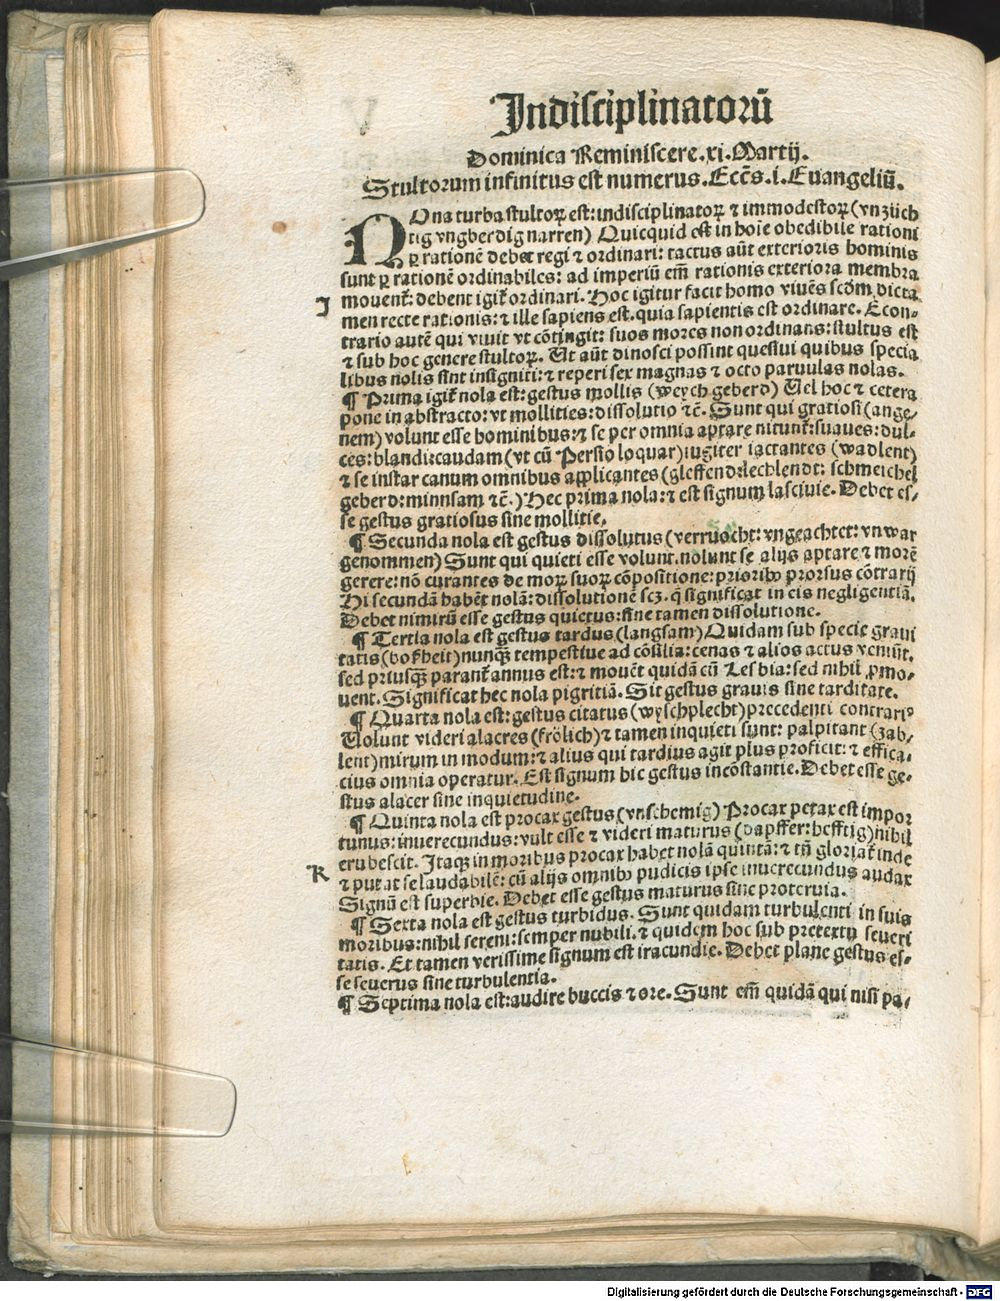 Indisciplinatorū
Dominica Reminiscere.xi.Martij.
Stultorum infinitus est numerus.Eccēs.i.Euangeliū.
NOna turba stultoꝝ est:indisciplinatoꝝ ⁊ immodestoꝝ(vnzüch
tig vngberdig narren) Quicquid est in hoīe obedibile rationi
ꝑ rationē debet regi ⁊ ordinari: tactus aūt exterioris hominis
sunt ꝑ rationē ordinabiles: ad imperiū em̄ rationis exteriora membra
I
mouent̄:debent igit̄ ordinari.Hoc igitur facit homo viuēs scdm̄ dicta
men recte rationis:⁊ ille sapiens est.quia sapientis est ordinare. Econ-
trario autē qui viuit vt cōtingit: suos mores non ordinans:stultus est
⁊ sub hoc genere stultoꝝ. Ut aūt dinosci possint quesiui quibus specia
libus nolis sint insigniti:⁊ reperi sex magnas ⁊ octo paruulas nolas.
¶ Prima igit̄ nola est:gestus mollis (weych geberd) Uel hoc ⁊ cetera
pone in abstracto:vt mollities:dissolutio ⁊c̄. Sunt qui gratiosi(ange-
nem)volunt esse hominibus:⁊ se per omnia aptare nitunt̄:suaues:dul-
ces:blandi:caudam(vt cū Persio loquar)iugiter iactantes (wadlent)
⁊ se instar canum omnibus applicantes(gleffend:lechlendt: schmeichel
geberd:minnsam ⁊c̄.)Hec prima nola:⁊ est signum lasciuie. Debet es-
se gestus gratiosus sine mollitie.
¶ Secunda nola est gestus dissolutus(verruocht:vngeachtet:vnwar
genommen)Sunt qui quieti esse volunt.nolunt se alijs aptare ⁊ morē
gerere:nō curantes de moꝝ suoꝝ cōpositione:prioribꝰ prorsus cōtrarij
Hi secundā habēt nolā:dissolutionē scꝫ.q̄ significat in eis negligentiā.
Debet nimirū esse gestus quietus:sine tamen dissolutione.
¶ Tertia nola est gestus tardus(langsam)Quidam sub specie graui
tatis(bokheit)nunqꝫ tempestiue ad cōsilia:cenas ⁊ alios actus veniūt.
sed priusqꝫ parant̄ annus est:⁊ mouēt quidā cū Lesbia:sed nihil ꝓmo-
uent.Significat hec nola pigritiā.Sit gestus grauis sine tarditate.
¶ Quarta nola est:gestus citatus(wyschplecht)precedenti contrariꝰ
Uolunt videri alacres(frölich)⁊ tamen inquieti sunt: palpitant(zab-
lent)mirum in modum:⁊ alius qui tardius agit plus proficit:⁊ effica-
cius omnia operatur.Est signum hic gestus incōstantie.Debet esse ge-
stus alacer sine inquietudine.
¶ Quinta nola est procax gestus(vnschemig) Procax petax est impor
tunus:inuerecundus:vult esse ⁊ videri maturus(dapffer:hefftig)nihil
erubescit.Itaqꝫ in moribus procax habet nolā quintā:⁊ tn̄ gloriat̄ inde
K
⁊ putat se laudabilē:cū alijs omnibꝰ pudicis ipse inuerecundus audax
Signū est superbie.Debet esse gestus maturus sine proteruia.
¶ Sexta nola est gestus turbidus.Sunt quidam turbulenti in suis
moribus:nihil sereni:semper nubili.⁊ quidem hoc sub pretextu seueri
tatis. Et tamen verissime signum est iracundie. Debet plane gestus es-
se seuerus sine turbulentia.
¶ Septima nola est:audire buccis ⁊ ore.Sunt em̄ quidā qui nisi pa-
Digitalisierung gefördert durch die Deutsche Forschungsgemeinschaft - DFG